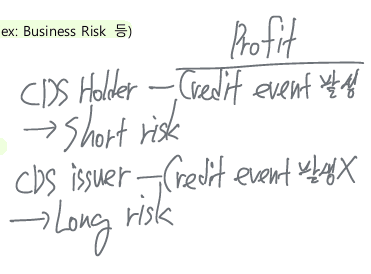 ex: Business Risk 등)
Profit
CDS Holder – Credit event 발생
→ Short risk
CDS issuer – Credit event 발생X
→ Long risk